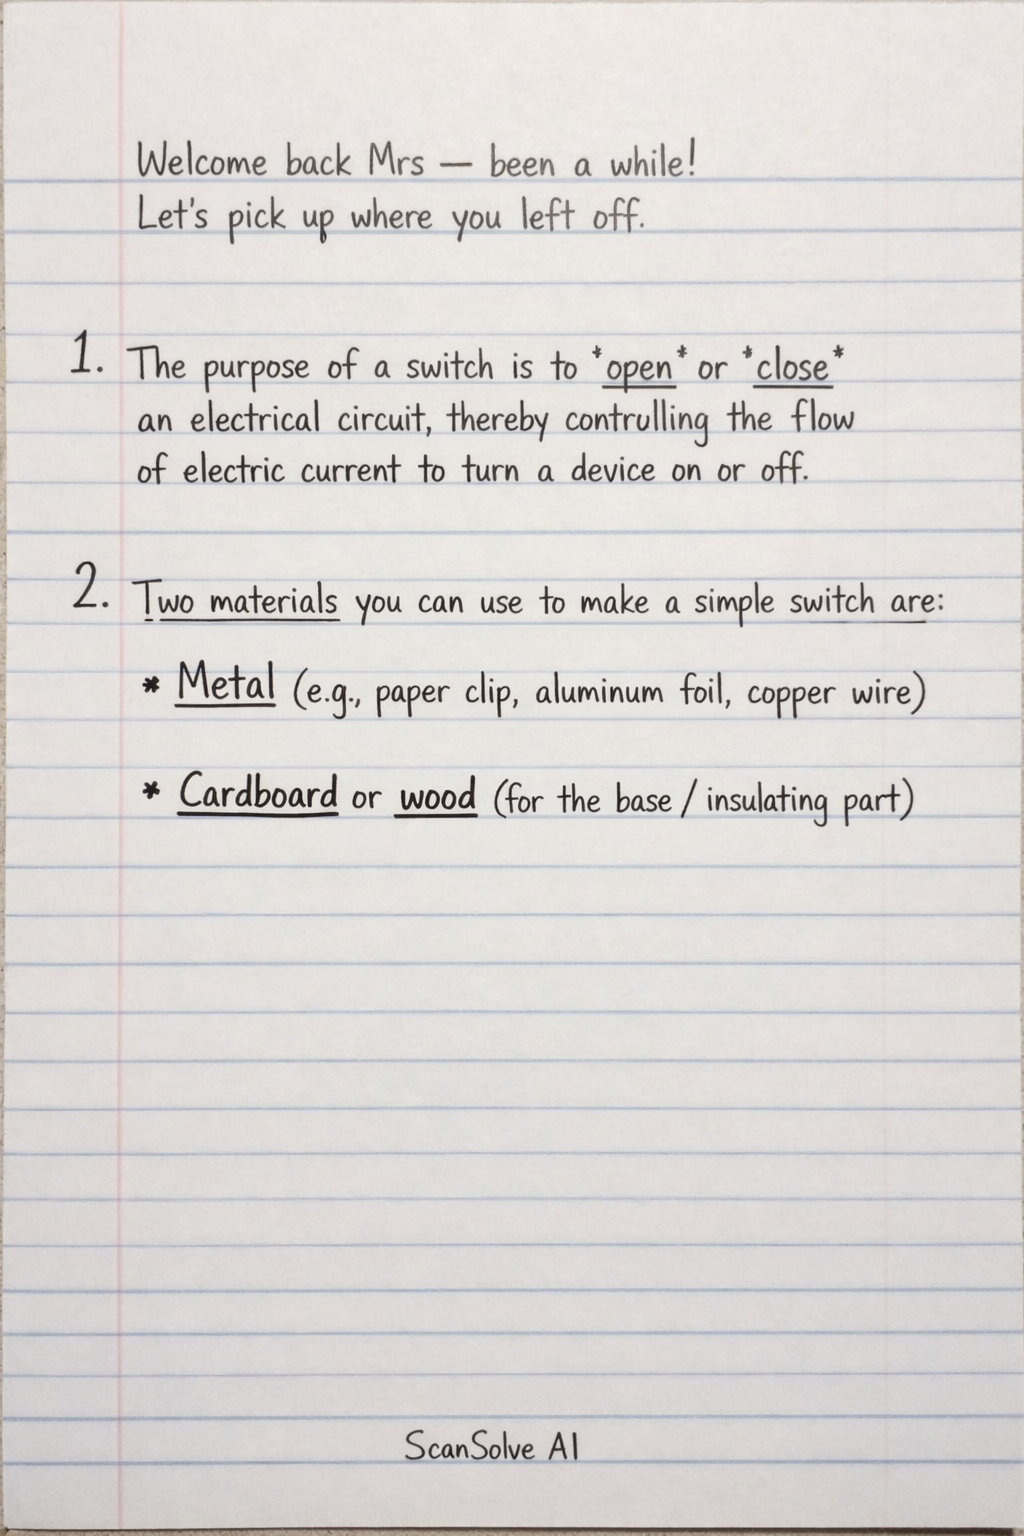 Welcome back Mrs — been a while!
Let's pick up where you left off.
1. The purpose of a switch is to *open* or *close*
an electrical circuit, thereby contrulling the flow
of electric current to turn a device on or off.
2. Two materials you can use to make a simple switch are:
* Metal (e.g., paper clip, aluminum foil, copper wire)
* Cardboard or wood (for the base / insulating part)
ScanSolve AI